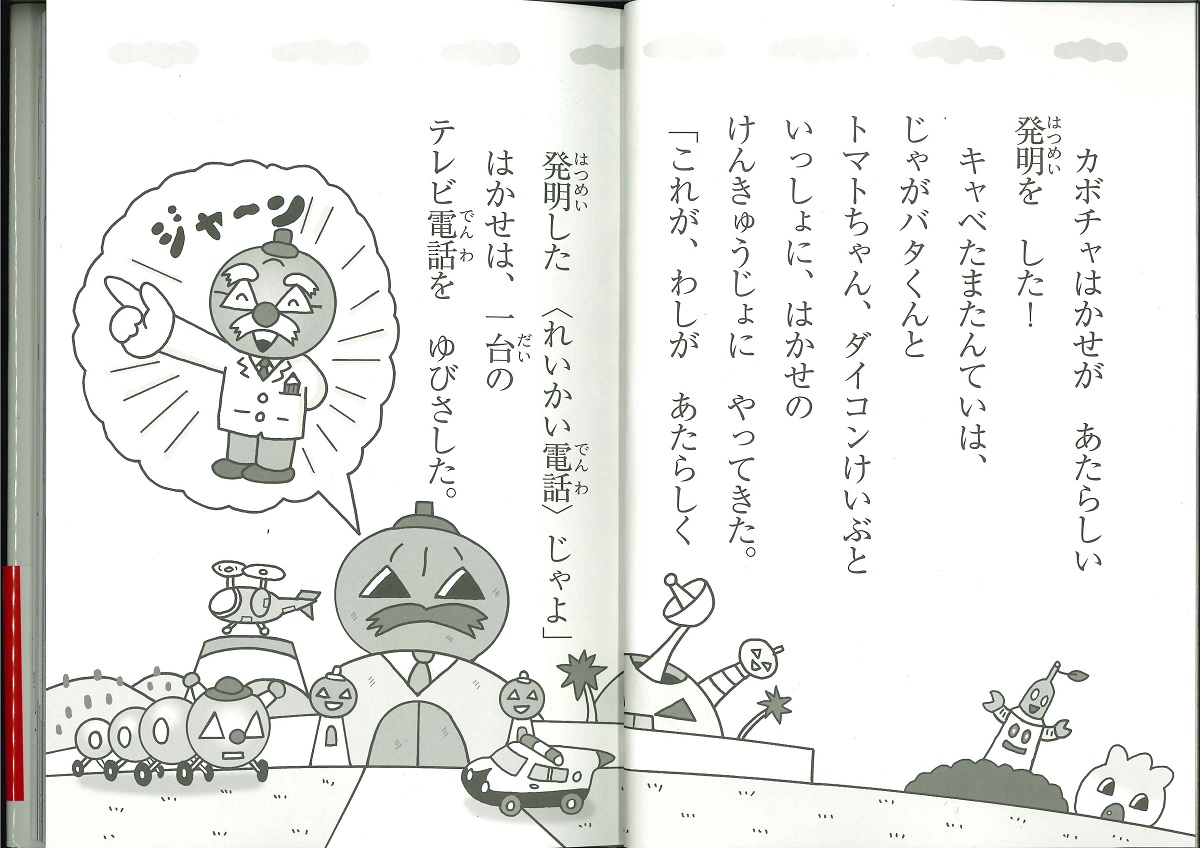 カボチャはかせが　あたらしい
発明を　した！
キャベたまたんていは、
じゃがバタくんと
トマトちゃん、ダイコンけいぶと
いっしょに、はかせの
けんきゅうじょに　やってきた。
「これが、わしが　あたらしく
発明した　〈れいかい電話〉じゃよ」
はかせは、一台の
テレビ電話を　ゆびさした。
ジャーン